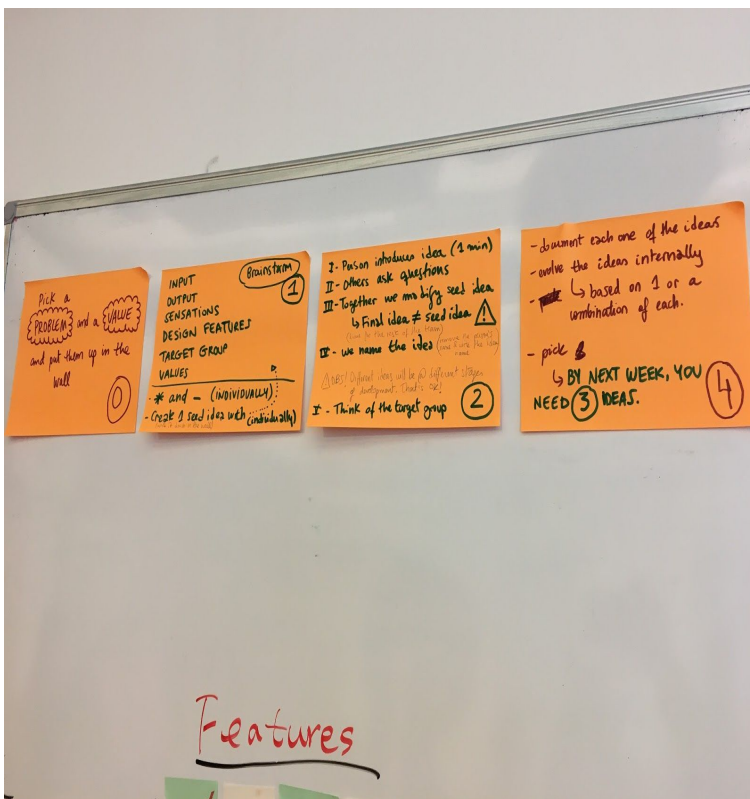 Pick a
PROBLEM and a VALUE
and put them up in the
wall
0
Brainstorm
1
INPUT
OUTPUT
SENSATIONS
DESIGN FEATURES
TARGET GROUP
VALUES
* and - (INDIVIDUALLY)
- Create 1 seed idea with (individually)
I - Person introduces idea (1 min)
II - Others ask questions
III - Together we modify seed idea
↳ Final idea ≠ seed idea
IV - we name the idea
OBS! Different ideas will be @ different stages
of development. That's OK!
I - Think of the target group
2
- document each one of the ideas
- evolve the ideas internally
↳ based on 1 or a
combination of each.
- pick
↳ BY NEXT WEEK, YOU
NEED 3 IDEAS.
4
Features